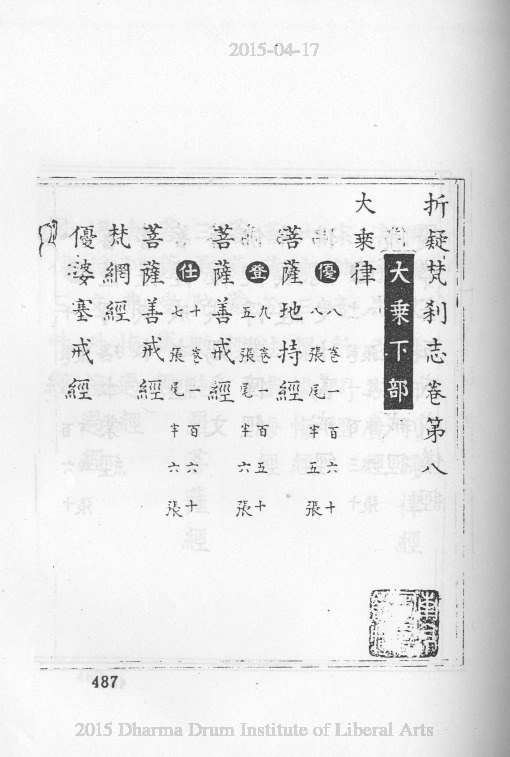 2015-04-17
折疑梵刹志卷第八
大乘下部
大乘律
優
八卷一百六十
八張尾半五張
菩薩地持經
登
九卷一百五十
五張尾半六張
菩薩善戒經
仕
十卷一百六十
七張尾半六張
菩薩善戒經
梵網經
優婆塞戒經
487
2015 Dharma Drum Institute of Liberal Arts